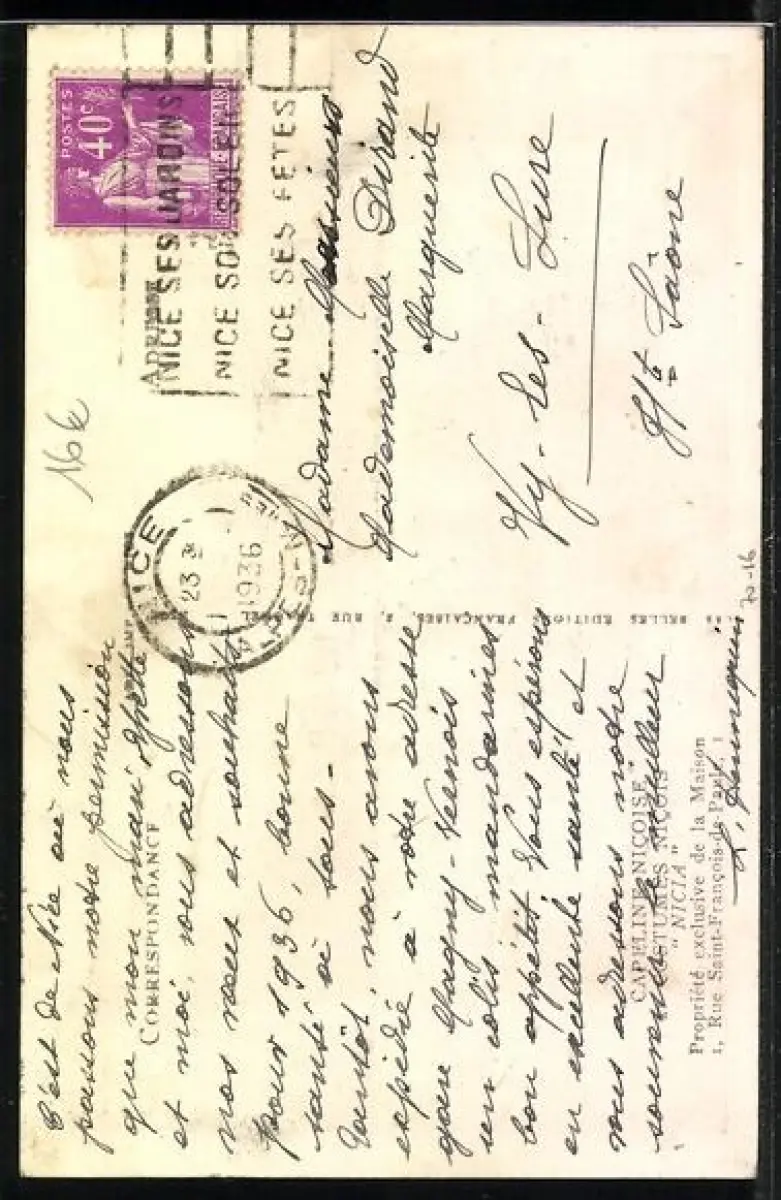 C'est de Nice où nous
passons notre permission
que mon mari Yvette
et moi, vous adressons
nos vœux et souhaits
pour 1936, bonne
santé à tous -
Tantôt, nous avons
expédié à votre adresse
gare Magny-Vernois
un colis mandarines
bon appétit. Vous espérons
en excellente santé et
vous adressons notre
souvenir le meilleur
CORRESPONDANCE
CAPELINE NIÇOISE
COSTUMES NIÇOIS
"NICIA"
Propriété exclusive de la Maison
1, Rue Saint-François-de-Paule, 1
70-16
LES BELLES EDITIONS FRANÇAISES, RUE
POSTES
40c
NICE SES JARDINS
NICE SON SOLEIL
NICE SES FETES
ADRESSE
166
NICE
23
1
1936
ALPES-MMES
Madame
Mademoiselle Dirand
Marguerite
Vy-les-Lure
Hte Saône